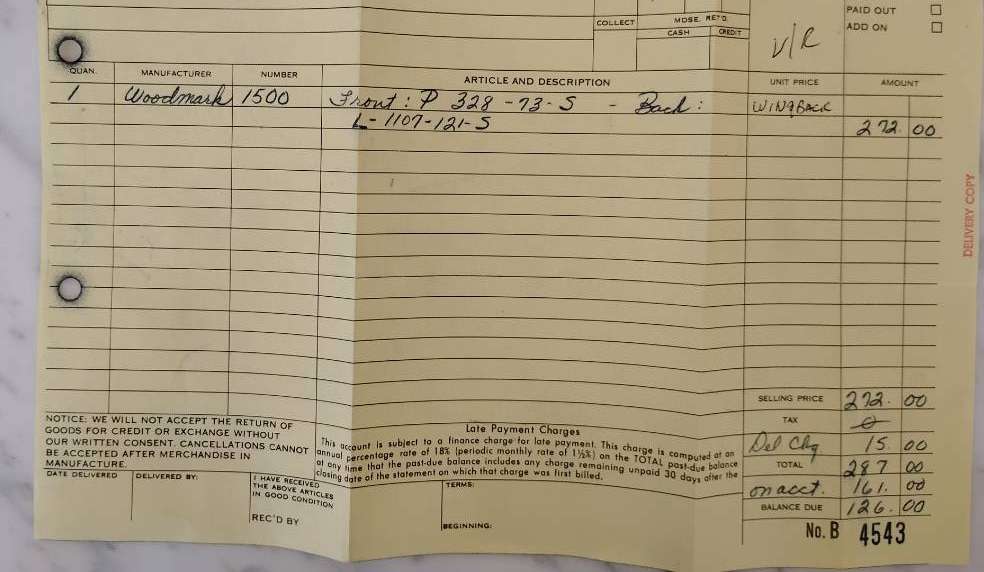 PAID OUT
ADD ON
COLLECT MDSE. RET'D.
CASH CREDIT
V/R
QUAN. MANUFACTURER NUMBER ARTICLE AND DESCRIPTION UNIT PRICE AMOUNT
1 Woodmark 1500 Front: P 328-73-S - Back: WINGBACK
L-1107-121-S 272.00
DELIVERY COPY
SELLING PRICE 272.00
TAX 0
Del Chg 15.00
TOTAL 287 00
on acct. 161.00
BALANCE DUE 126.00
No. B 4543
NOTICE: WE WILL NOT ACCEPT THE RETURN OF
GOODS FOR CREDIT OR EXCHANGE WITHOUT
OUR WRITTEN CONSENT. CANCELLATIONS CANNOT
BE ACCEPTED AFTER MERCHANDISE IN
MANUFACTURE.
Late Payment Charges
This account is subject to a finance charge for late payment. This charge is computed at an
annual percentage rate of 18% (periodic monthly rate of 1½%) on the TOTAL past-due balance
at any time that the past-due balance includes any charge remaining unpaid 30 days after the
closing date of the statement on which that charge was first billed.
DATE DELIVERED DELIVERED BY: I HAVE RECEIVED
THE ABOVE ARTICLES
IN GOOD CONDITION
REC'D BY
TERMS:
BEGINNING: